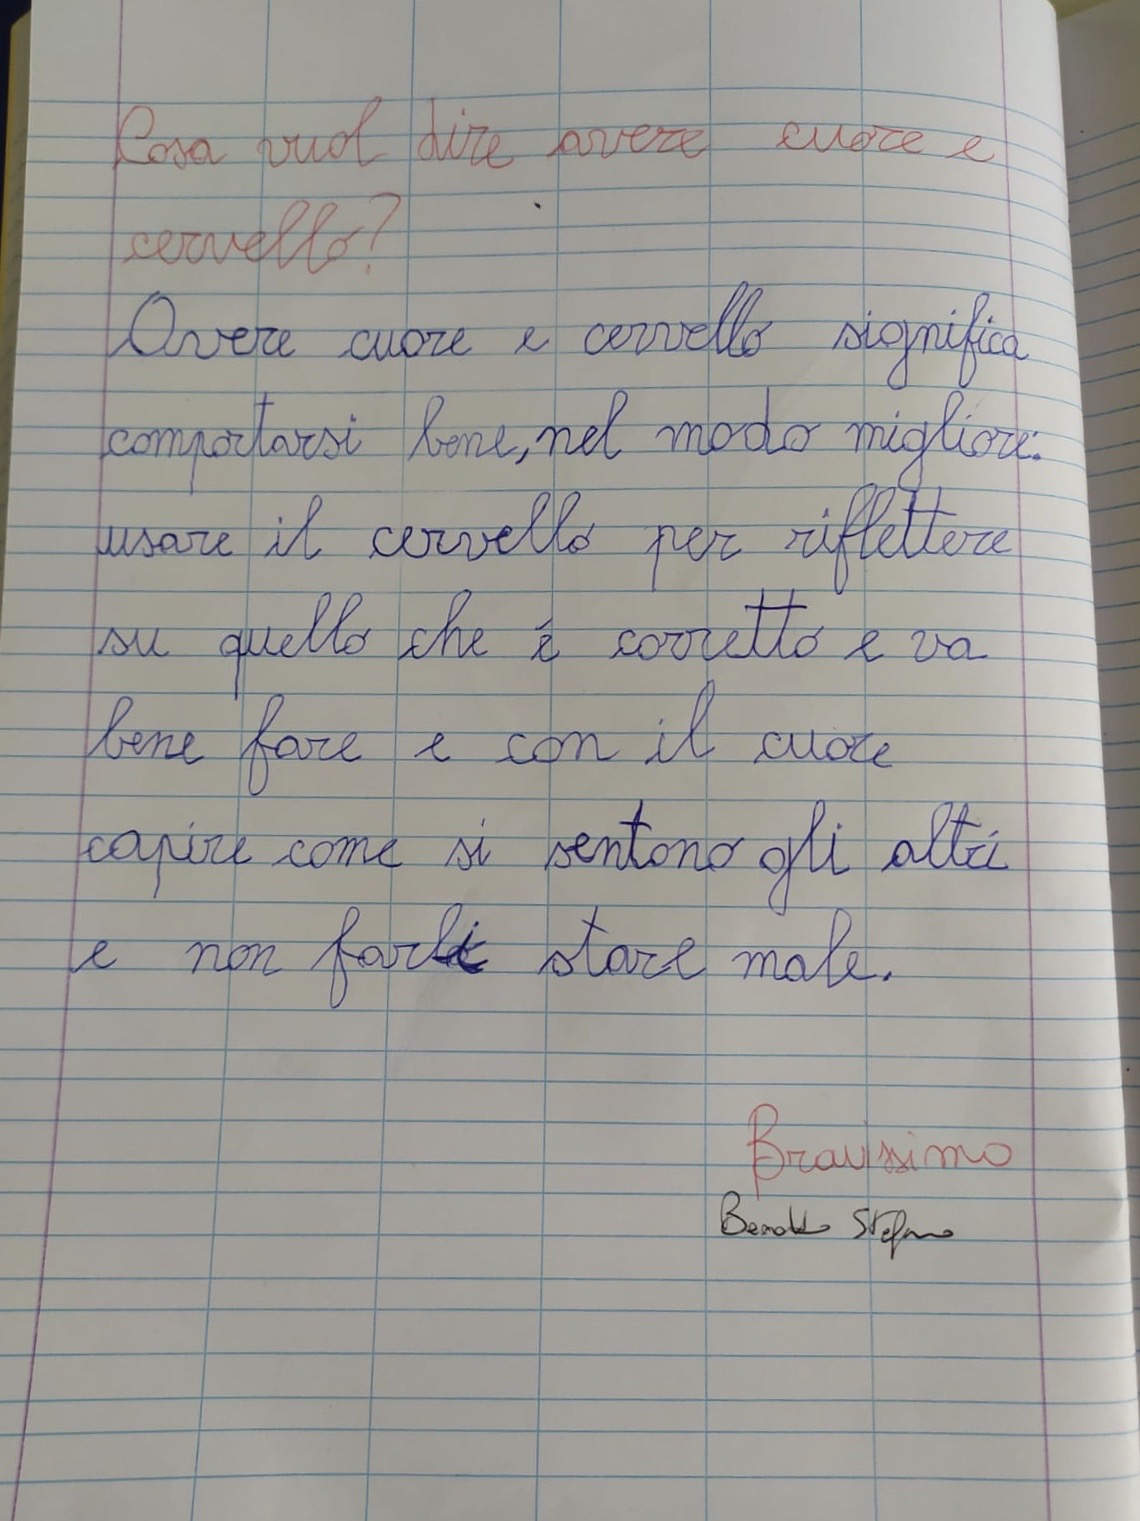 Cosa vuol dire avere cuore e
cervello?
Avere cuore e cervello significa
comportarsi bene, nel modo migliore:
usare il cervello per riflettere
su quello che è corretto e va
bene fare e con il cuore
capire come si sentono gli altri
e non farli stare male.
Bravissimo
Stefano